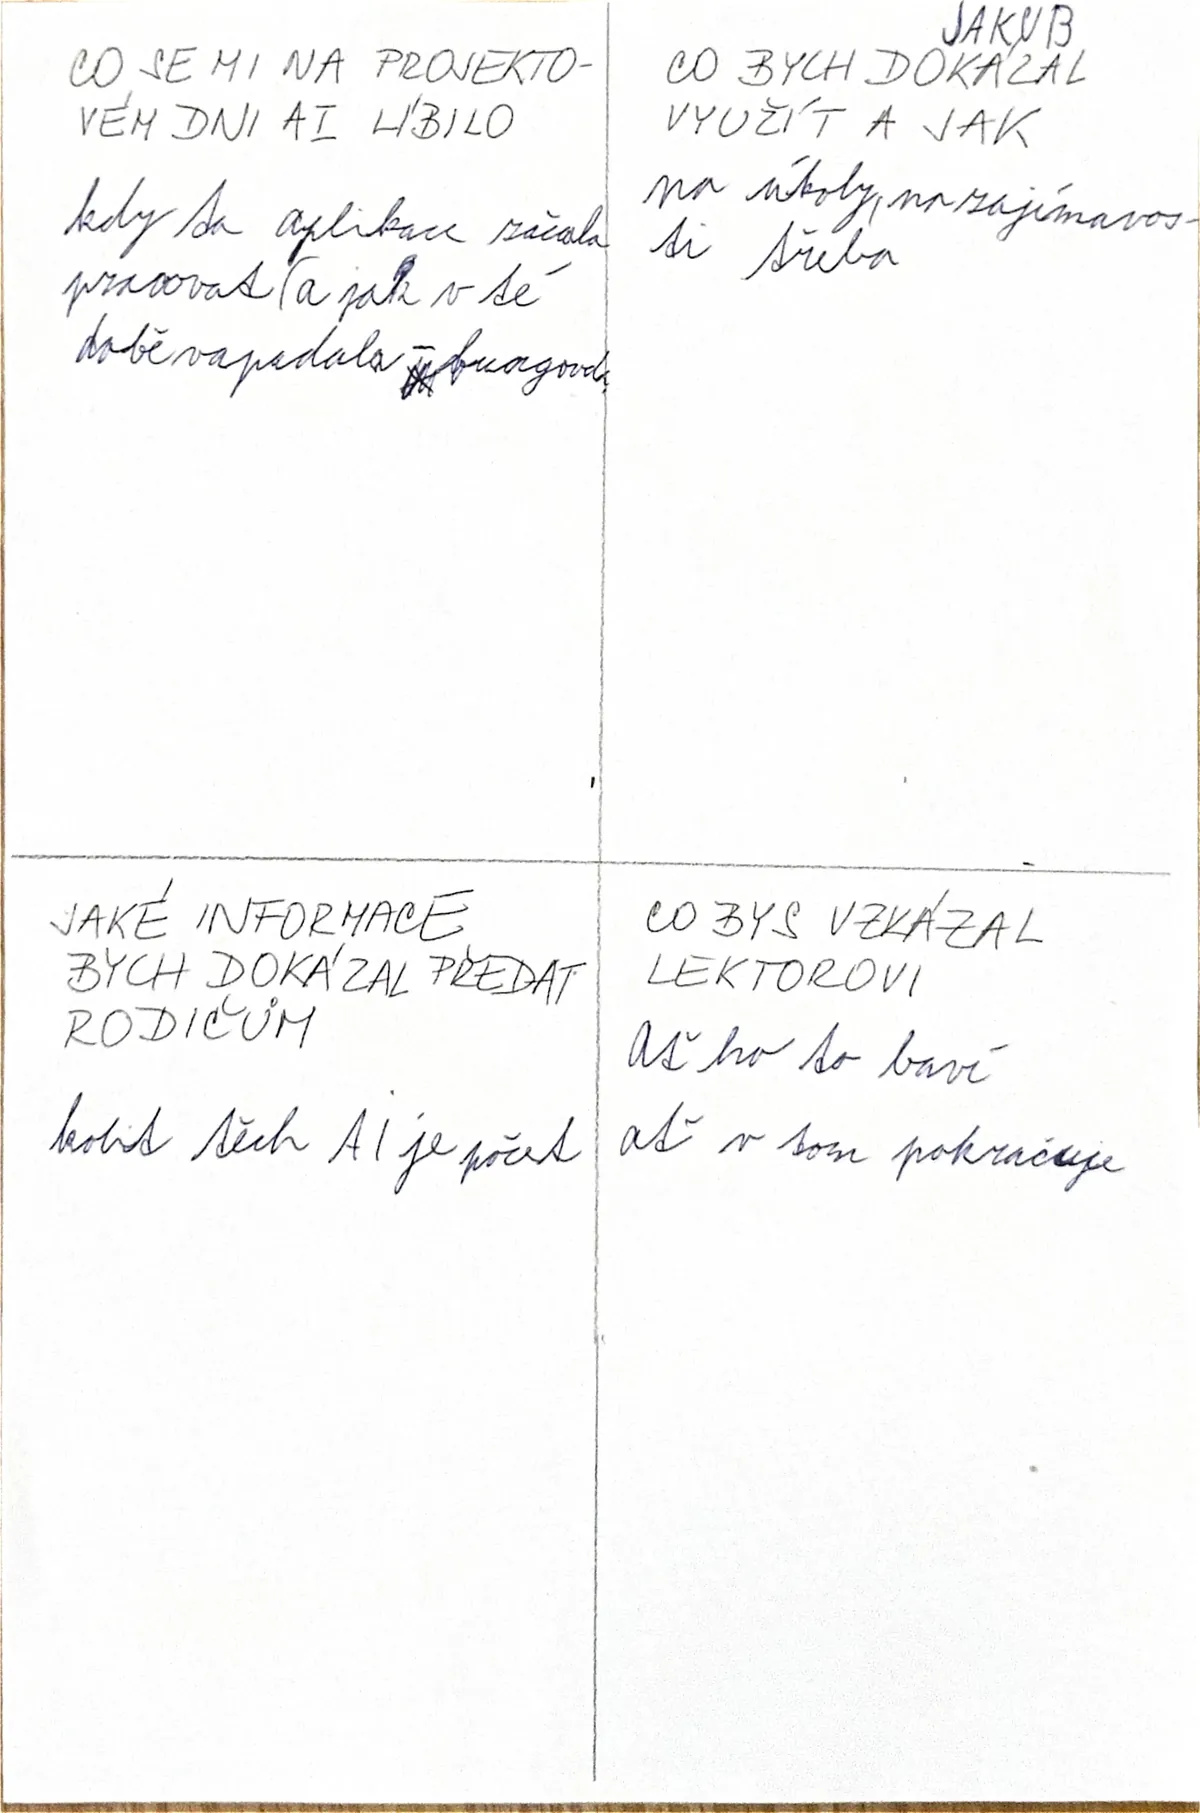 JAKUB
CO SE MI NA PROJEKTO-
VÉM DNI AI LÍBILO
kdy ta aplikace začala
pracovat (a jak v té
době vapadala fungovala
CO BYCH DOKÁZAL
VYUŽÍT A JAK
na úkoly, na zajímavos-
ti třeba
JAKÉ INFORMACE
BYCH DOKÁZAL PŘEDAT
RODIČŮM
kolit těch AI je počet
CO BYS VZKÁZAL
LEKTOROVI
Ať ho to baví
ať v tom pokračuje